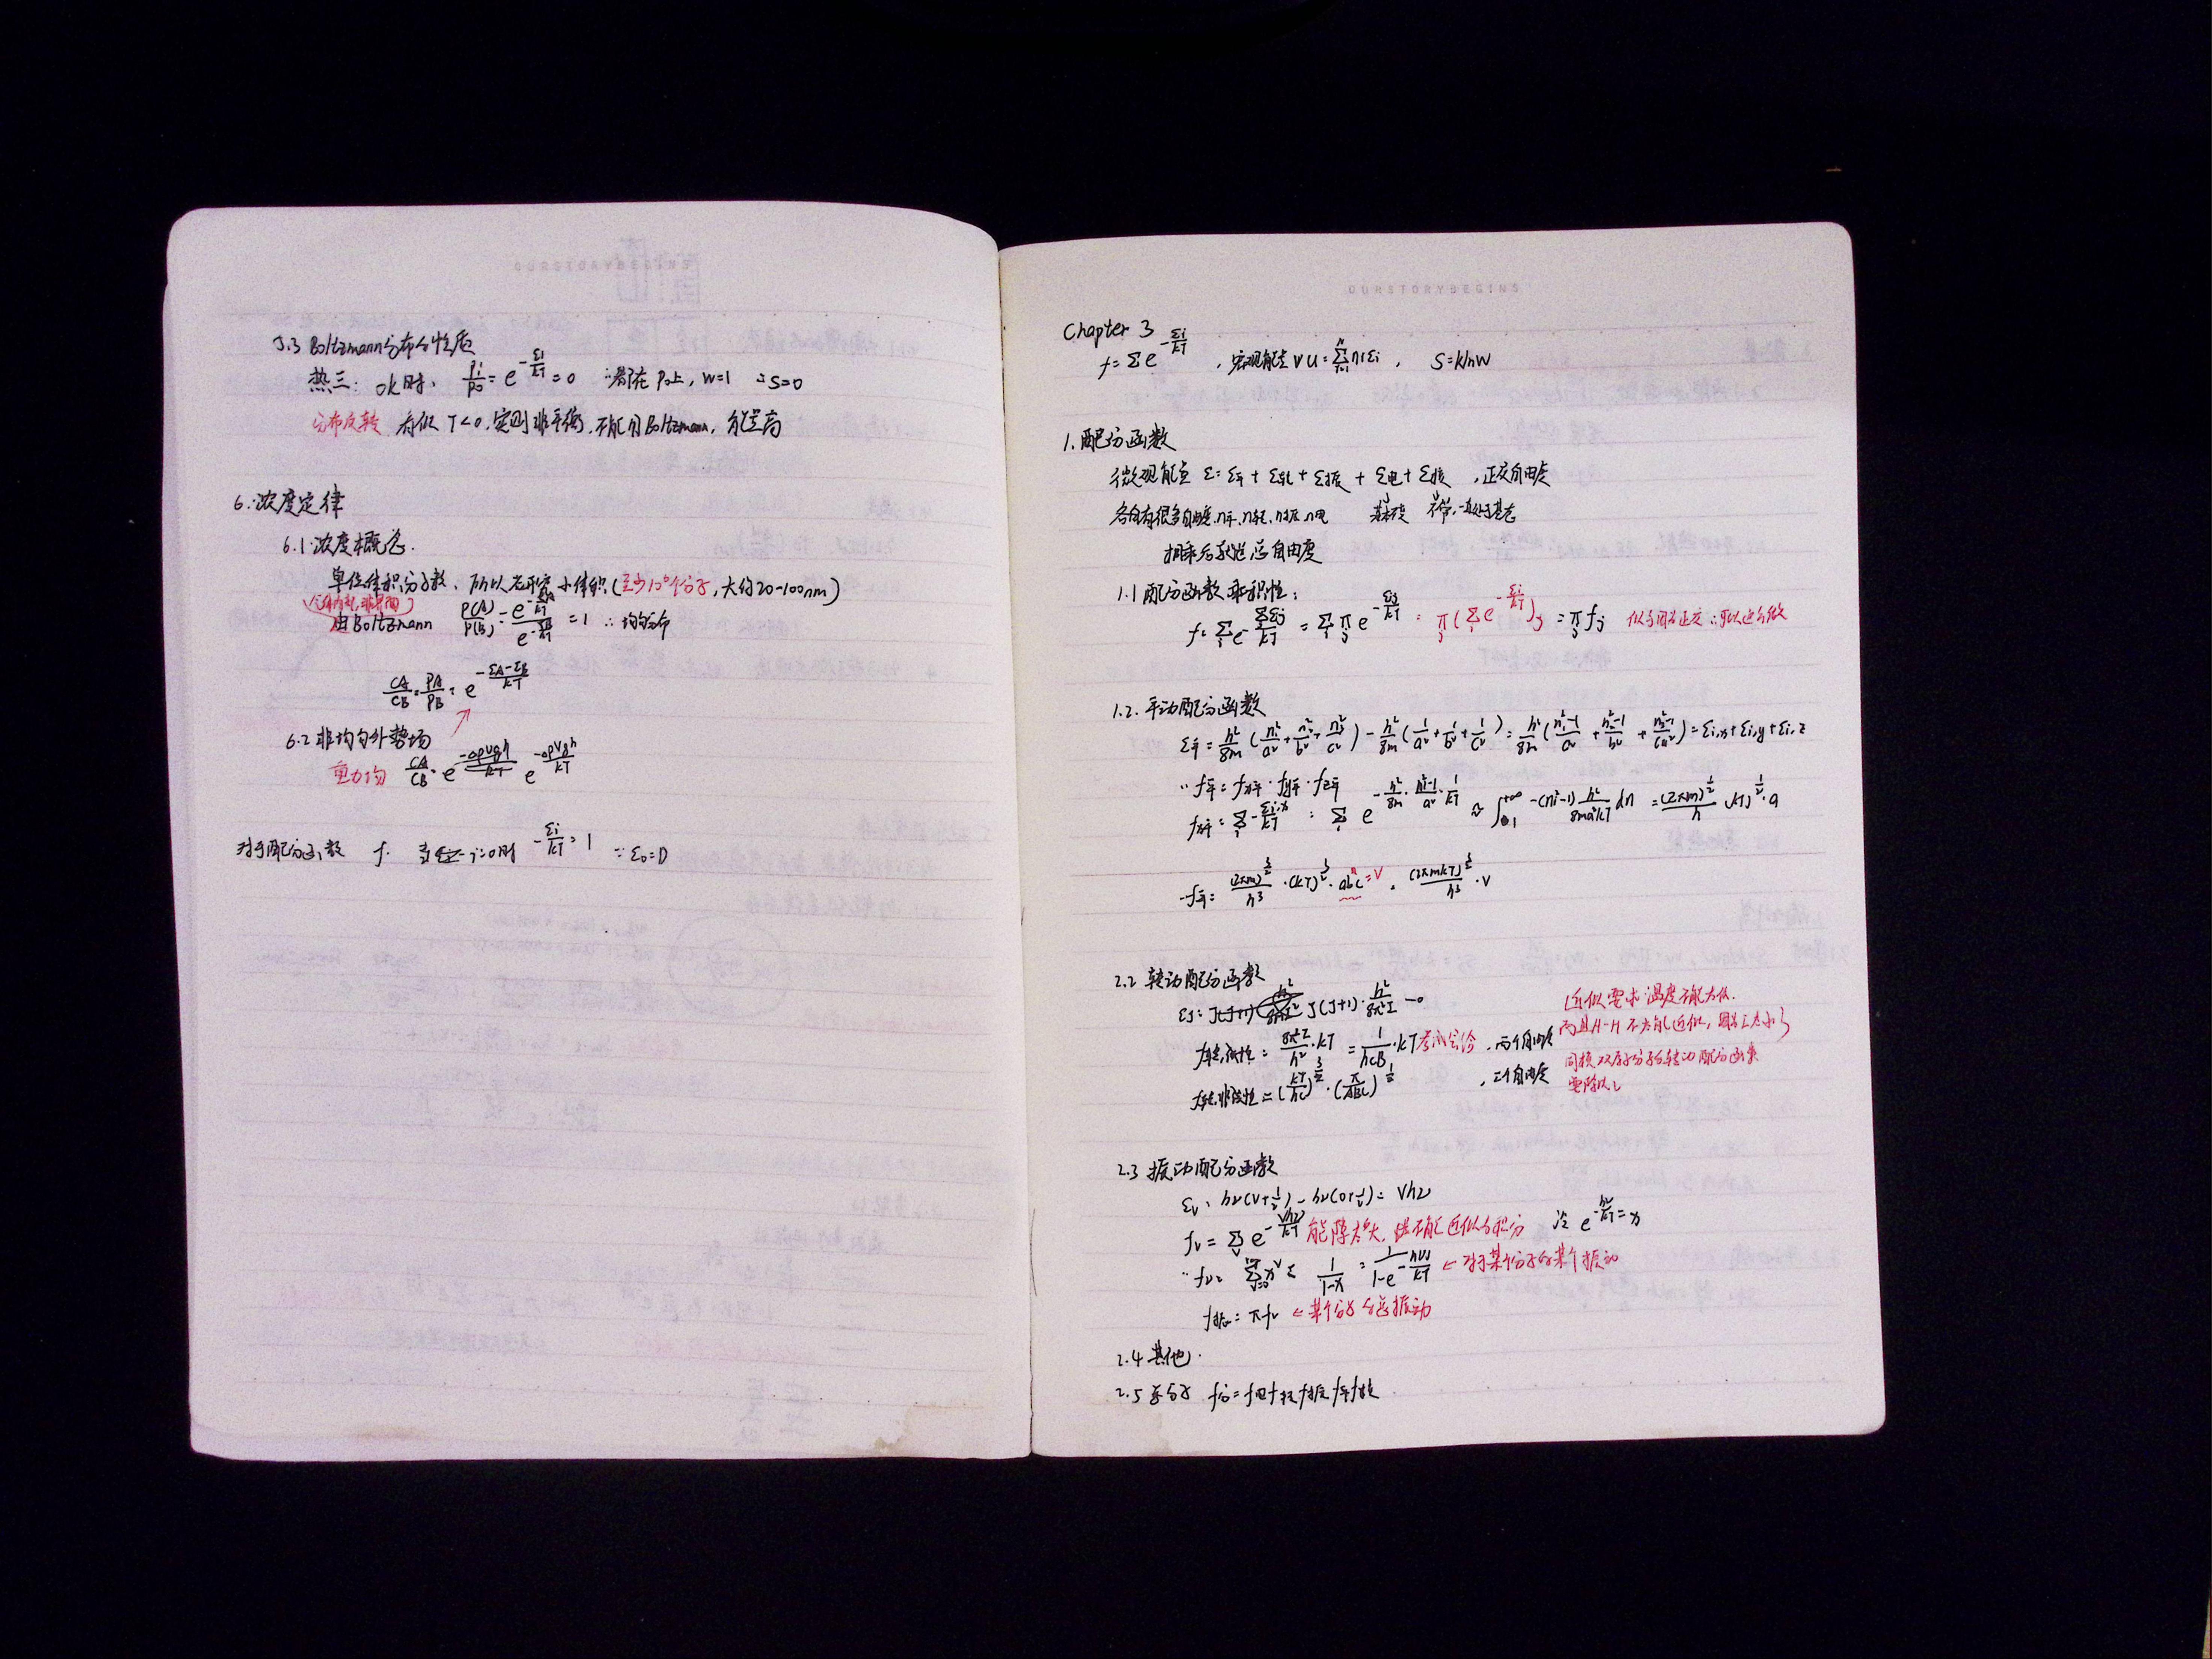 OURSTORYBEGINS
5.3 Boltzmann分布的性质
热三: 0k时, Pi/P0 = e^(-εi/kT) = 0 ∴都在P0上, W=1 ∴S=0
分布反转 看似 T<0, 实则非平衡, 不能用Boltzmann, 能量高
6. 浓度定律
6.1 浓度概念.
单位体积分子数, 所以 小体积(至少10⁶个分子, 大约20-100nm)
由Boltzmann P(A)/P(B) = e^(-εA/kT)/e^(-εB/kT) = 1 ∴均匀分布
CA/CB = PA/PB = e^(-(εA-εB)/kT)
6.2 非均匀外势场
重力场 CA/CB = e^(-ΔρVgh/kT) e^(-ΔρVgh/kT)
对于配分函数 f. 当 i=0时 -εi/kT = 1 ∵ε0=0
OURSTORYBEGINS
Chapter 3
f = Σe^(-εi/kT) , 宏观能量 U=Σniεi , S=klnW
1. 配分函数
微观能量 ε = ε平 + ε转 + ε振 + ε电 + ε核 , 正交自由度
各自有很多自由度, n平, n转, n振, n电 不常, 一直处于基态
相乘后 总自由度
1.1 配分函数乘积性:
f = Σi e^(-Σεj/kT) = Σi πj e^(-εj/kT) = πj(Σi e^(-εi/kT))j = πj fj 似乎因为正交 ∴可以这么做
1.2. 平动配分函数
ε平 = h²/8m (n1²/a² + n2²/b² + n3²/c²) - h²/8m (1/a² + 1/b² + 1/c²) = h²/8m (n1²-1/a² + n2²-1/b² + n3²-1/c²) = εi,x + εi,y + εi,z
∴ f平 = fx平 · fy平 · fz平
fx平 = Σi -εi,x/kT = Σi e^(-h²/8m · n²-1/a² · 1/kT) ≈ ∫₁^(+∞) -(n²-1) h²/8ma²kT dn = (2πm)^(1/2)/h (kT)^(1/2) · a
∴f平 = (2πm)^(3/2)/h³ · (kT)^(3/2) · abc=V = (2πmkT)^(3/2)/h³ · V
2.2 转动配分函数
εJ = J(J+1) h²/8π²I J(J+1) · h²/8π²I - 0
f转,线性 = 8π²I/h² · kT = 1/hcB · kT 考试会给 , 两个自由度
f转,非线性 = (kT/hc)^(3/2) · (π/ABC)^(1/2) , 三个自由度
(近似要求温度不能太低.
而且H-H不太能近似, 因为I太小)
同核双原子分子的转动配分函数
要除以2
2.3 振动配分函数
εv = hν(v+1/2) - hν(0+1/2) = vhν
fv = Σv e^(-vhν/kT) 能隙太大, 不能近似为积分 令 e^(-hν/kT) = x
∴ fv = Σ x^v = 1/(1-x) = 1/(1-e^(-hν/kT)) ← 对于某个分子的某个振动
f振 = πfv ← 某个分子的总振动
2.4 其他.
2.5 总分子 f分 = f电 f核 f振 f平 f转